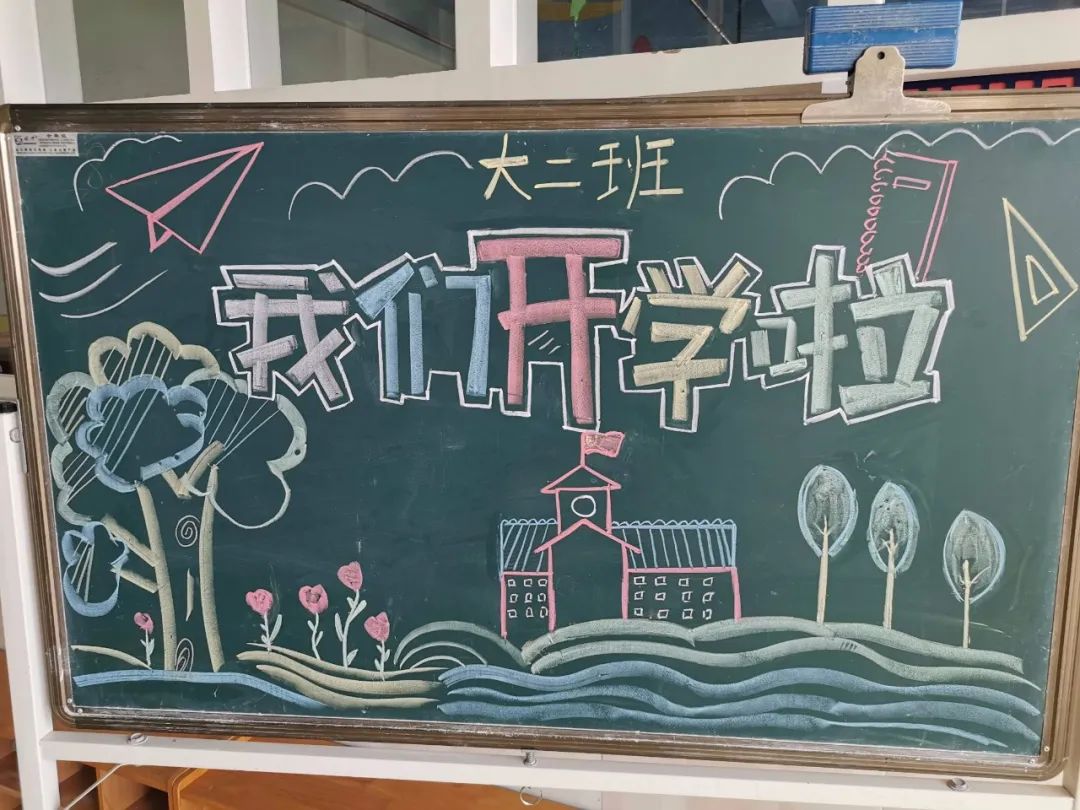 大二班
我们开学啦